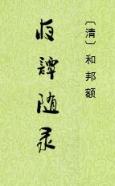 〔清〕和邦额
夜譚随录